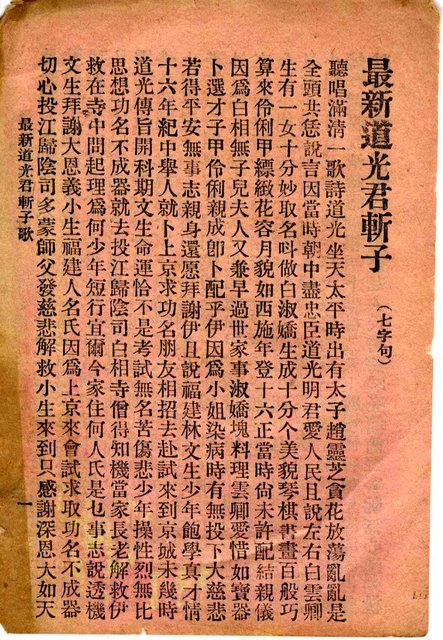 最新道光君斬子
（七字句）
聽唱滿清一歌詩道光坐天太平時出有太子趙靈芝貪花放蕩亂亂是
全頭共恁說言因當時朝中盡忠臣道光明君愛人民且說左右白雲卿
生有一女十分妙取名呌做白淑嬌生成十分个美貌琴棋書畫百般巧
算來伶俐甲縹緻花容月貌如西施年登十六正當時尚未許配結親儀
因爲白相無子兒夫人又兼早過世家事淑嬌塊料理雲卿愛惜如寶器
卜選才子甲伶俐親成卽卜配乎伊因爲小姐染病時有無投下大慈悲
若得平安無事志親身還愿拜謝伊且說福建林文生少年飽學真才情
十六年紀中舉人就卜上京求功名朋友相招去赴試來到京城未幾時
道光傳旨開科期文生命運恰不是考試無名苦傷悲少年操性烈無比
思想功名不成器就去投江歸陰司白相寺僧得知機當家長老解救伊
救在寺中問起理爲何少年短行宜爾今家住何人氏是乜事志說透機
文生拜謝大恩義小生福建人名氏因爲上京來會試求取功名不成器
切心投江歸陰司多蒙師父發慈悲解救小生來到只感謝深恩大如天
最新道光君斬子歌
一